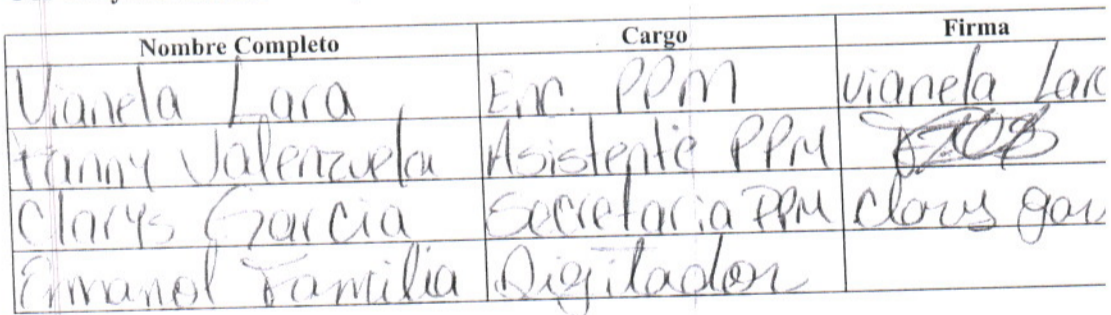 Nombre Completo Cargo Firma
Vianela Lara Enc. PPM vianela Lar
Fanny Valenzuela Asistente PPM
Clarys Garcia Secretaria PPM Clarys gar
Emanol Familia Digitador